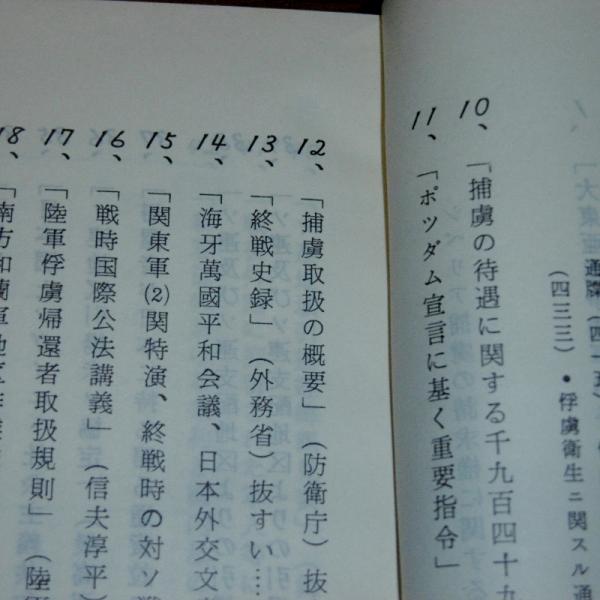 通牒(四一五)
(四三三)・俘虜衛生ニ関スル通
10、「捕虜の待遇に関する千九百四十九
11、「ポツダム宣言に基く重要指令」
12、「捕虜取扱の概要」(防衛庁)抜
13、「終戦史録」(外務省)抜すい……
14、「海牙萬國平和会議、日本外交文
15、「関東軍(2)関特演、終戦時の対ソ戦
16、「戦時国際公法講義」(信夫淳平)
17、「陸軍俘虜帰還者取扱規則」(陸軍
18、「南方和蘭軍地区作業